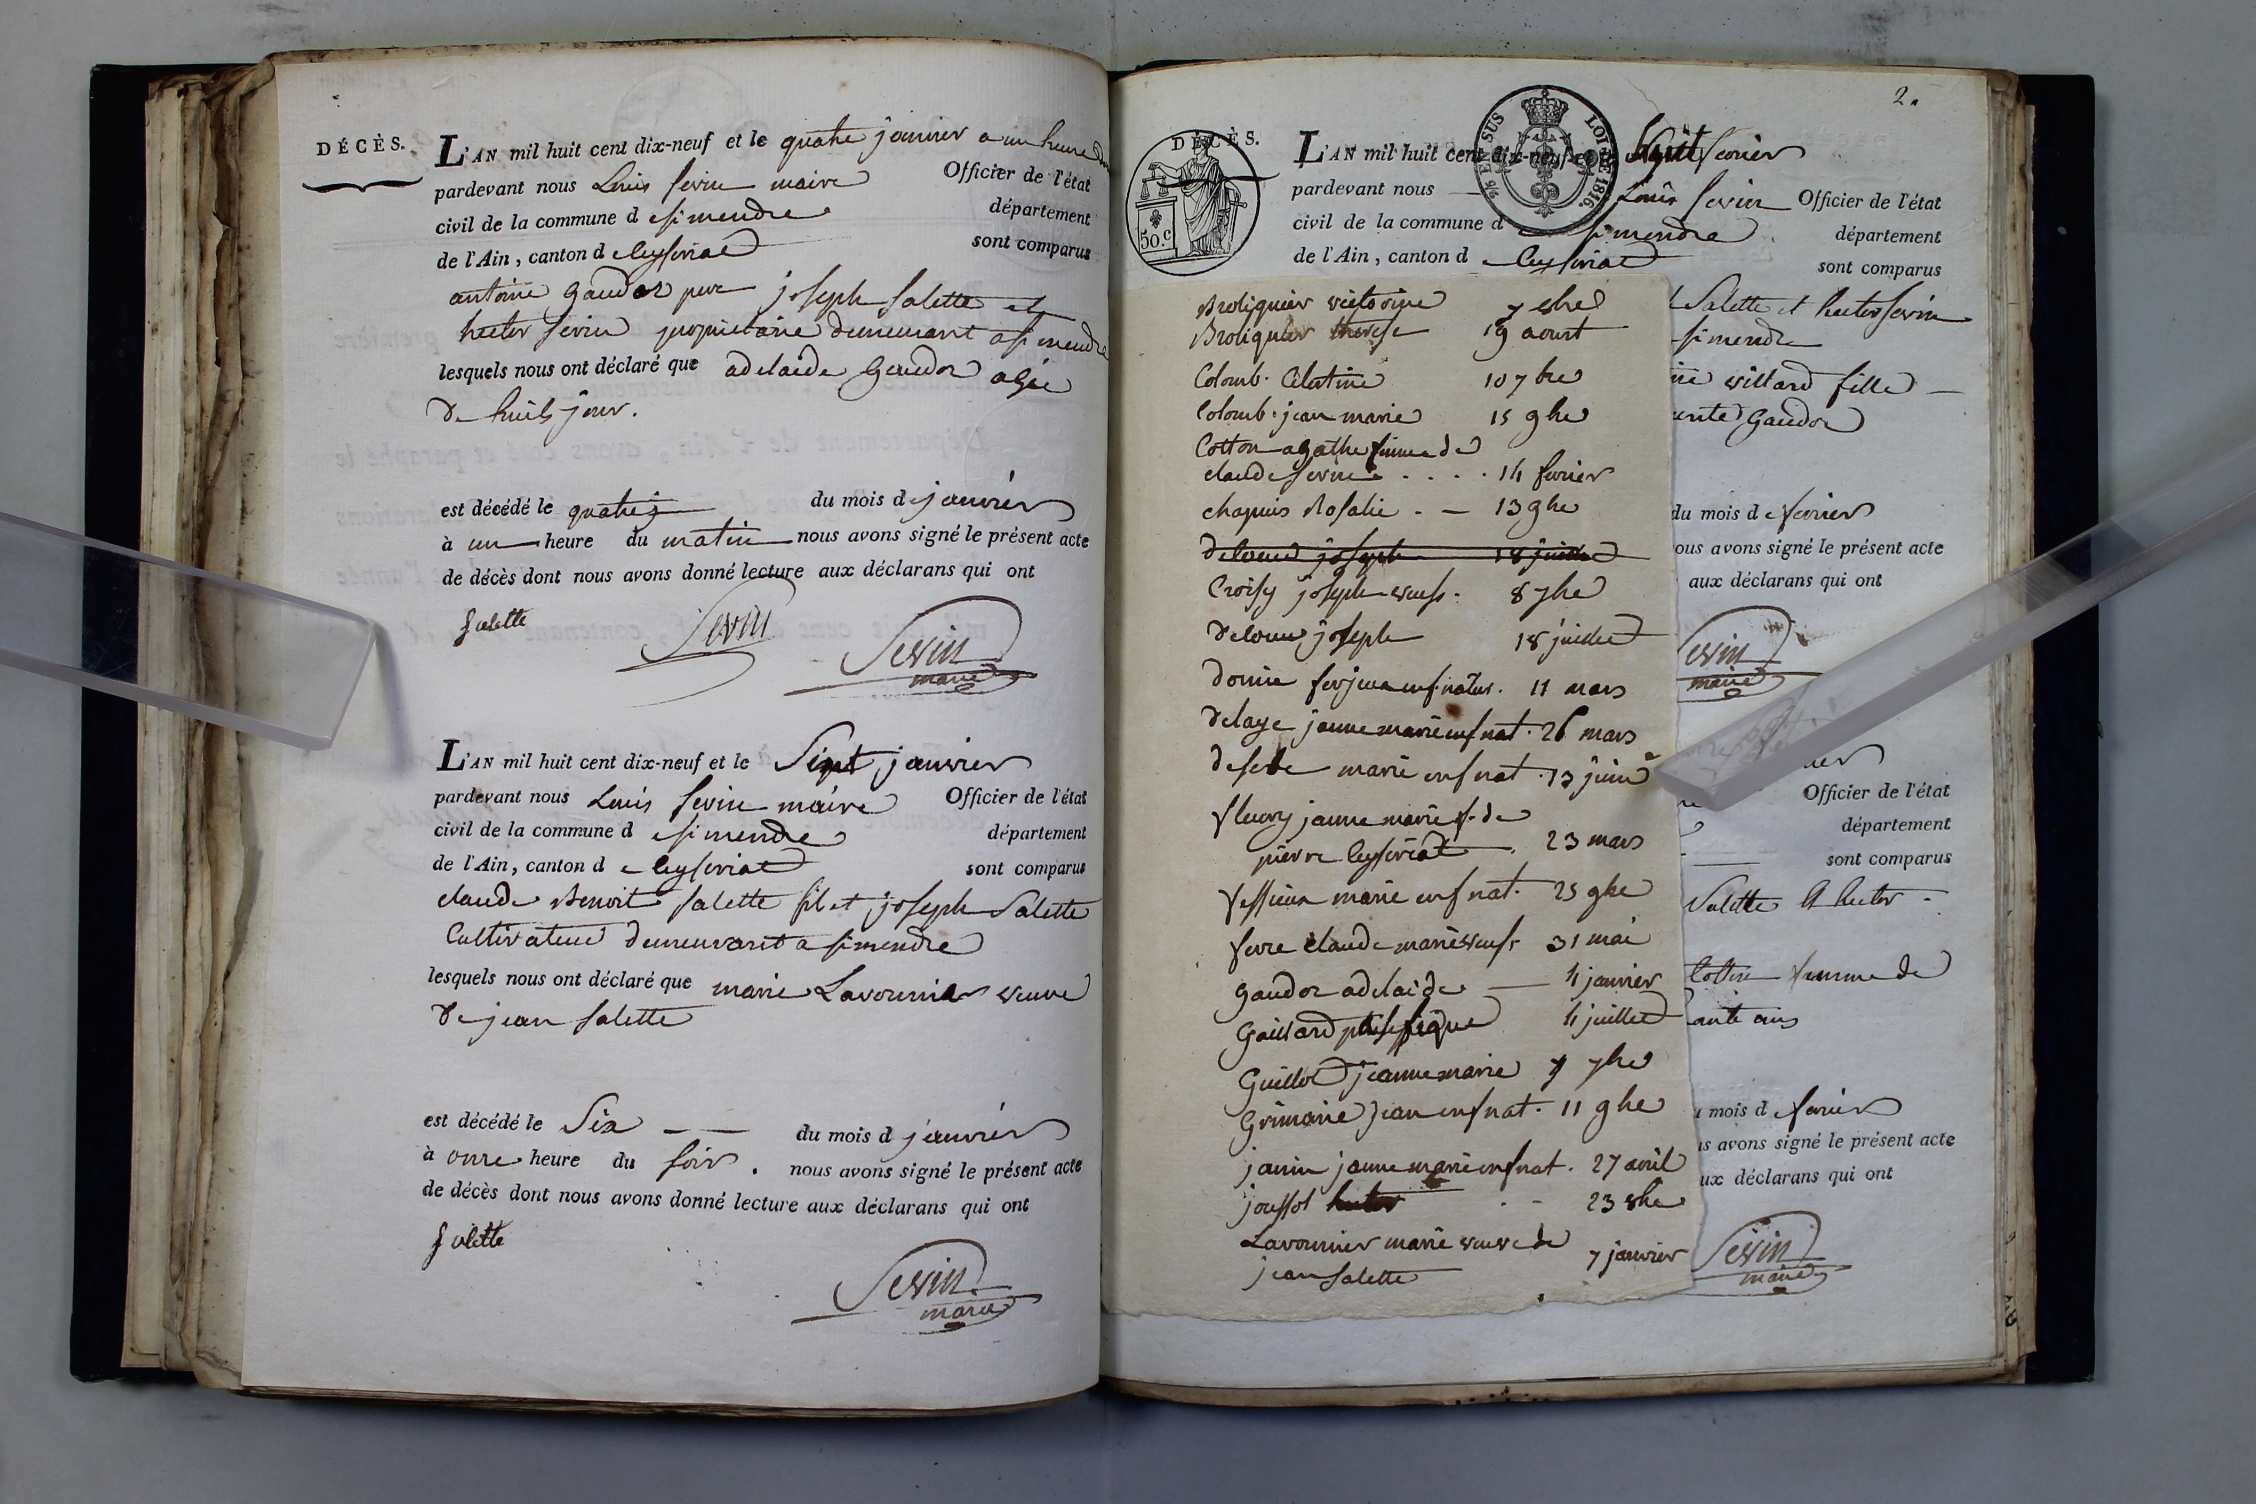 DÉCÈS.
L'AN mil huit cent dix-neuf et le quatre janvier a un heure du
pardevant nous Louis sevin maire Officier de l'état
civil de la commune d simendre département
de l'Ain, canton d Ceyseriat sont comparus
antoine Gaudoz pere joseph salette et
hector sevin proprietaire demeurant a simendre
lesquels nous ont déclaré que adelaide Gaudoz agée
de huits jour.
est décédé le quatre du mois d janvier
à un heure du matin nous avons signé le présent acte
de décès dont nous avons donné lecture aux déclarans qui ont
Salette Sevin Sevin
maire
L'AN mil huit cent dix-neuf et le Sept janvier
pardevant nous Louis sevin maire Officier de l'état
civil de la commune d simendre département
de l'Ain, canton d Ceyseriat sont comparus
claude Benoit salette fil et joseph Salette
Cultivateur demeurant a simendre
lesquels nous ont déclaré que marie Lavournier veuve
de jean salette
est décédé le Six du mois d janvier
à onze heure du soir. nous avons signé le présent acte
de décès dont nous avons donné lecture aux déclarans qui ont
Salette
Sevin
maire
2.
DÉCÈS.
EN SUS
LOI DE 1816.
50.c
L'AN mil huit cent dix-neuf et le huit fevrier
pardevant nous Louis sevin Officier de l'état
civil de la commune d simendre département
de l'Ain, canton d Ceyseriat sont comparus
Salette et hector sevin
simendre
villard fille
Gaudoz
du mois d fevrier
ous avons signé le présent acte
aux déclarans qui ont
Sevin
maire
Broliquier victoire 7 8bre
Broliquier therese 19 aoust
Colomb. Celestine 10 7bre
Colomb. jean marie 15 9bre
Cotton agathe femme de
claude sevin . . . . 14 fevrier
chapuis Rosalie . — 13 9bre
Delorme joseph 18 juillet
Croisy joseph veuf. 8 7bre
Delorme joseph 18 juillet
Domine ferjeux enf. natur. 11 mars
Delaye jeanne marie enf nat. 26 mars
marie enf nat. 13 juin
fleury jeanne marie f. de
pierre Ceyseriat . 23 mars
marie enf nat. 25 9bre
fevre claude marie veuf. 31 mai
Gaudoz adelaide — 4 janvier
Gaillard 4 juillet
Guillot jeanne marie 7 7bre
Grimarie jean enf nat. 11 9bre
janin jeanne marie enf nat. 27 avril
joussot hector 23 8bre
Lavournier marie veuve de
jean salette 7 janvier
Officier de l'état
département
sont comparus
Salette & hector
Cotton femme de
ante ans
mois d fevrier
s avons signé le présent acte
ux déclarans qui ont
Sevin
maire